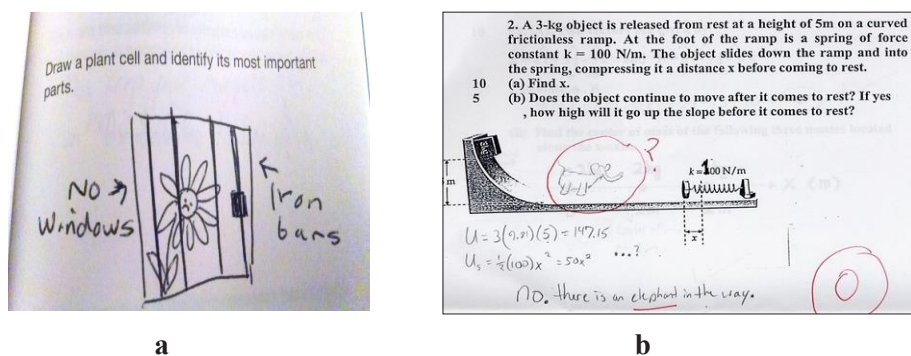 Draw a plant cell and identify its most important
parts.
NO
Windows
Iron
bars
a
2. A 3-kg object is released from rest at a height of 5m on a curved
frictionless ramp. At the foot of the ramp is a spring of force
constant k = 100 N/m. The object slides down the ramp and into
the spring, compressing it a distance x before coming to rest.
10 (a) Find x.
5 (b) Does the object continue to move after it comes to rest? If yes
, how high will it go up the slope before it comes to rest?
?
k=100 N/m
m
x
U = 3(9.81)(5) = 147.15
Us = ½(100)x² = 50x² ...?
no. there is an elephant in the way.
0
b